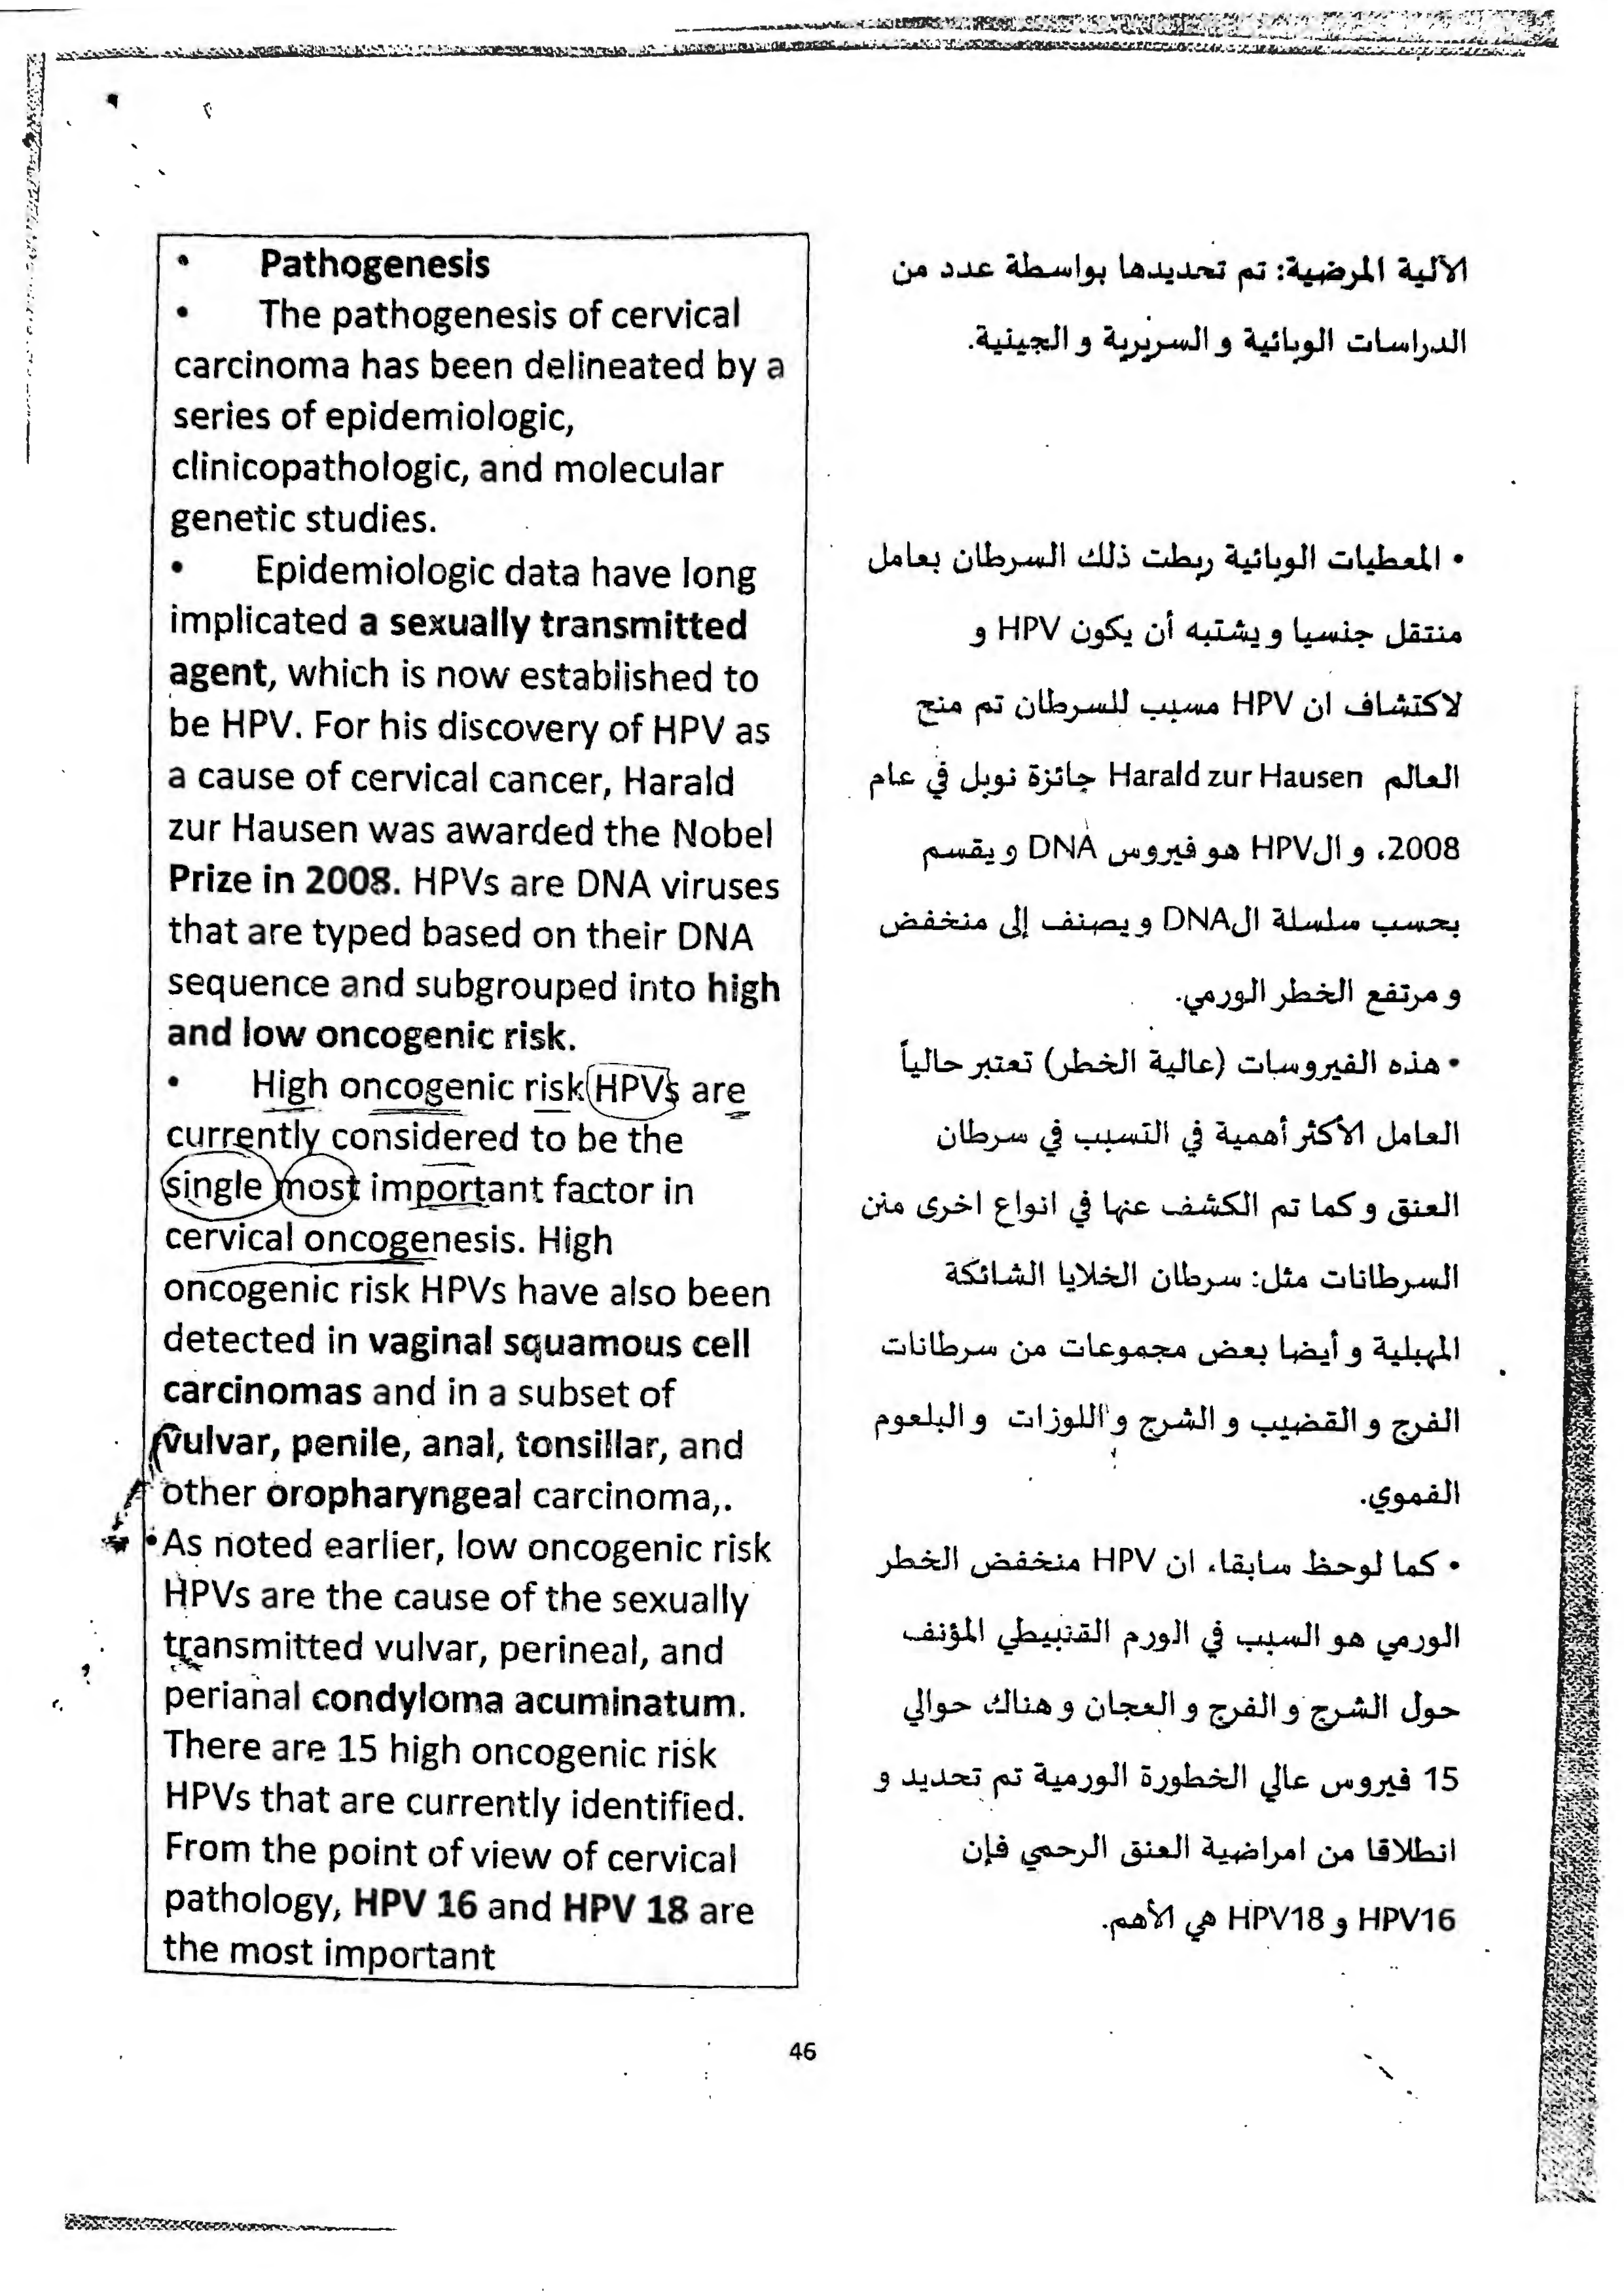 • Pathogenesis
• The pathogenesis of cervical
carcinoma has been delineated by a
series of epidemiologic,
clinicopathologic, and molecular
genetic studies.
• Epidemiologic data have long
implicated a sexually transmitted
agent, which is now established to
be HPV. For his discovery of HPV as
a cause of cervical cancer, Harald
zur Hausen was awarded the Nobel
Prize in 2008. HPVs are DNA viruses
that are typed based on their DNA
sequence and subgrouped into high
and low oncogenic risk.
• High oncogenic risk HPVs are
currently considered to be the
single most important factor in
cervical oncogenesis. High
oncogenic risk HPVs have also been
detected in vaginal squamous cell
carcinomas and in a subset of
vulvar, penile, anal, tonsillar, and
other oropharyngeal carcinoma,.
• As noted earlier, low oncogenic risk
HPVs are the cause of the sexually
transmitted vulvar, perineal, and
perianal condyloma acuminatum.
There are 15 high oncogenic risk
HPVs that are currently identified.
From the point of view of cervical
pathology, HPV 16 and HPV 18 are
the most important
الآلية المرضية: تم تحديدها بواسطة عدد من
الدراسات الوبائية و السريرية و الجينية.
• المعطيات الوبائية ربطت ذلك السرطان بعامل
منتقل جنسيا و يشتبه أن يكون HPV و
لاكتشاف ان HPV مسبب للسرطان تم منح
العالم Harald zur Hausen جائزة نوبل في عام
2008، و الHPV هو فيروس DNA و يقسم
بحسب سلسلة الDNA و يصنف إلى منخفض
و مرتفع الخطر الورمي.
• هذه الفيروسات (عالية الخطر) تعتبر حالياً
العامل الأكثر أهمية في التسبب في سرطان
العنق و كما تم الكشف عنها في انواع اخرى من
السرطانات مثل: سرطان الخلايا الشائكة
المهبلية و أيضا بعض مجموعات من سرطانات
الفرج و القضيب و الشرج و اللوزات و البلعوم
الفموي.
• كما لوحظ سابقا، ان HPV منخفض الخطر
الورمي هو السبب في الورم القنبيطي المؤنف
حول الشرج و الفرج و العجان و هناك حوالي
15 فيروس عالي الخطورة الورمية تم تحديد و
انطلاقا من امراضية العنق الرحمي فإن
HPV16 و HPV18 هي الأهم.
46